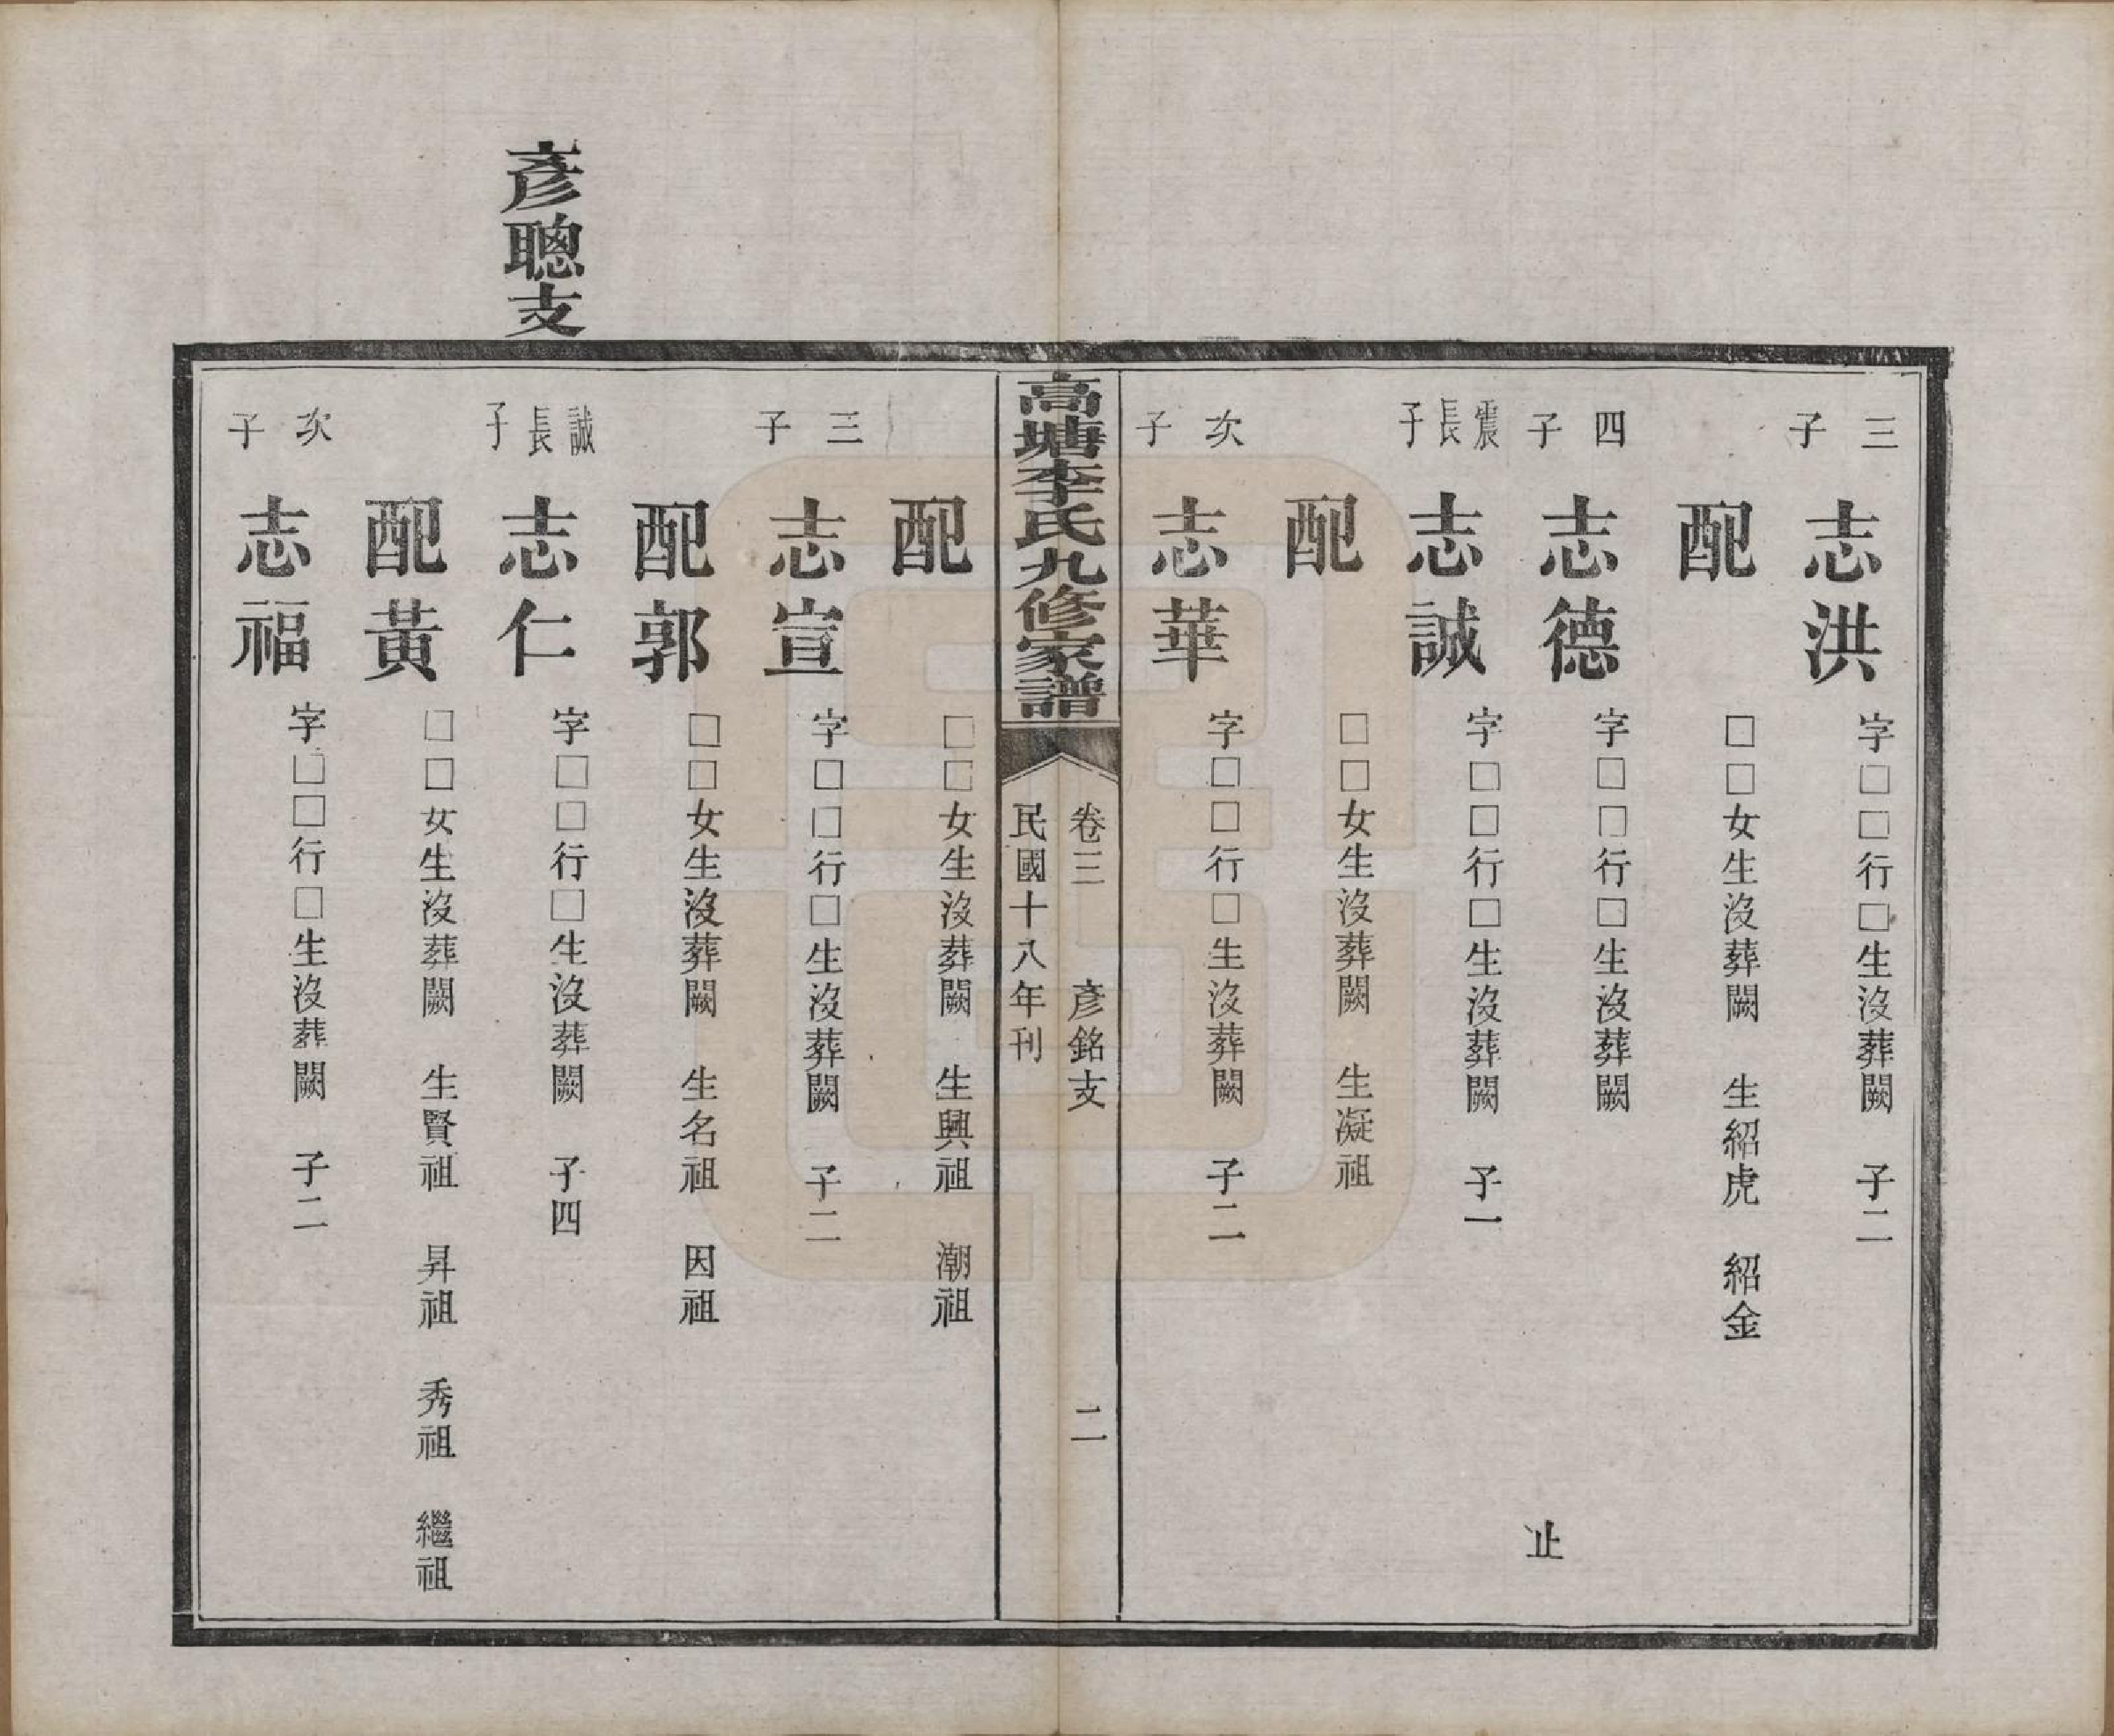 三子
志洪
字□□行□生沒葬闕 子二
配
□□女生沒葬闕 生紹虎 紹金
四子
志德
字□□行□生沒葬闕
止
震長子
志誠
字□□行□生沒葬闕 子一
配
□□女生沒葬闕 生凝祖
次子
志華
字□□行□生沒葬闕 子二
高塘李氏九修家譜
卷三 彥銘支 二
民國十八年刊
配
□□女生沒葬闕 生興祖 潮祖
三子
志宣
字□□行□生沒葬闕 子二
配郭
□□女生沒葬闕 生名祖 因祖
彥聰支
誠長子
志仁
字□□行□生沒葬闕 子四
配黃
□□女生沒葬闕 生賢祖 昇祖 秀祖 繼祖
次子
志福
字□□行□生沒葬闕 子二